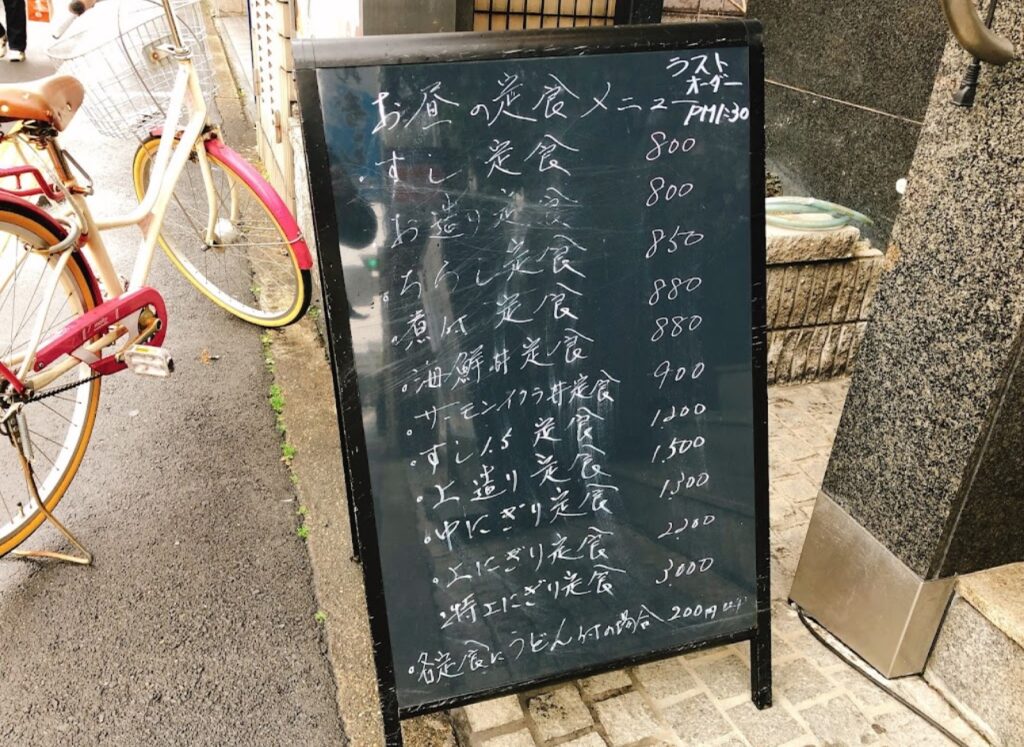 ラスト
オーダー
PM1:30
お昼の定食メニュー
・すし定食 800
・お造り定食 800
・ちらし定食 850
・煮付定食 880
・海鮮丼定食 880
・サーモンイクラ丼定食 900
・すし1.5定食 1.200
・上造り定食 1.500
・中にぎり定食 1.300
・上にぎり定食 2.200
・特上にぎり定食 3.000
・各定食にうどん付の場合 200円